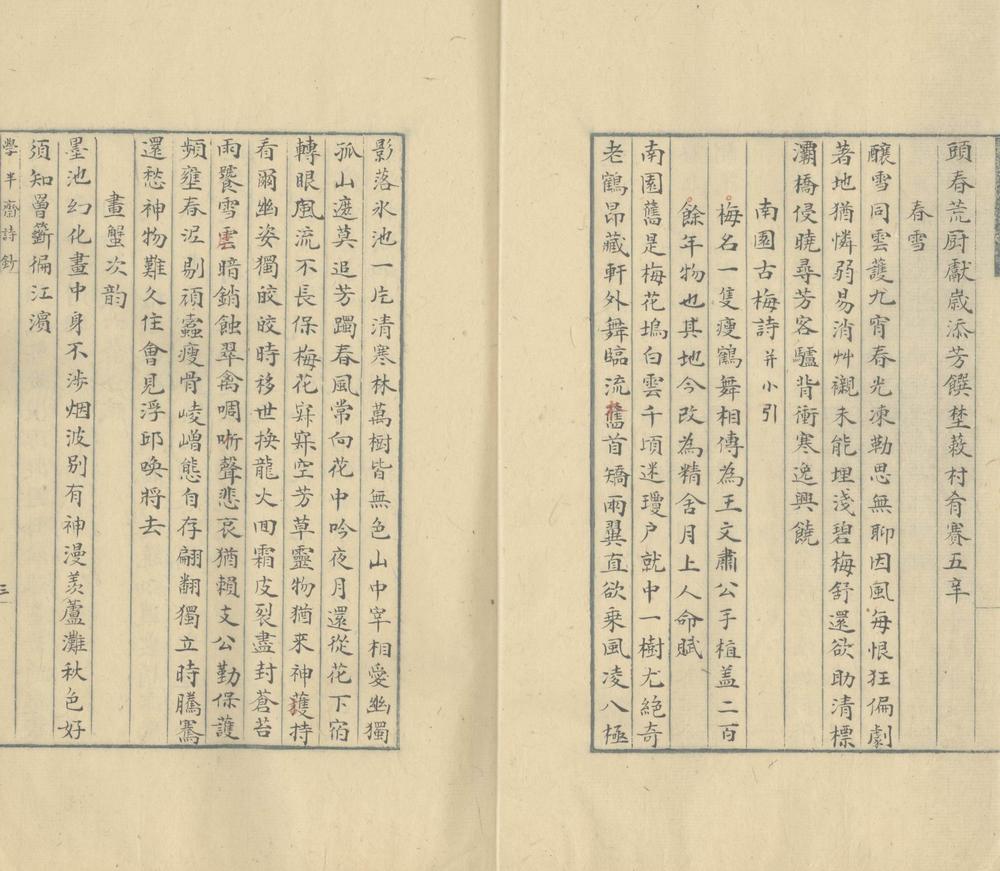 頭春荒厨獻歲添芳饌埜蔌村肴賽五辛
春雪
釀雪同雲護九宵春光凍勒思無聊因風每恨狂偏劇
著地猶憐弱易消艸襯未能埋淺碧梅舒還欲助清標
灞橋侵曉尋芳客驢背衝寒逸興饒
南園古梅詩 并小引
梅名一隻瘦鶴舞相傳為王文肅公手植盖二百
餘年物也其地今改為精舍月上人命賦
南園舊是梅花塢白雲千頃迷瓊户就中一樹尤絶奇
老鶴昂藏軒外舞臨流舊首矯雨翼直欲乗風凌八極
影落氷池一片清寒林萬樹皆無色山中宰相愛幽獨
孤山遊莫追芳躅春風常向花中吟夜月還從花下宿
轉眼風流不長保梅花寂寂空芳草靈物猶来神護持
看爾幽姿獨皎皎時移世換龍火回霜皮裂盡封蒼苔
雨饕雪雲暗銷蝕翠禽啁哳聲悲哀猶賴支公勤保護
頻壅春泥剔頑蠹瘦骨崚嶒態自存翩翻獨立時騰騫
還愁神物難久住會見浮邱喚將去
畫蟹次韵
墨池幻化畫中身不涉烟波別有神漫羡蘆灘秋色好
須知罾籪徧江濱
學半齋詩鈔
三